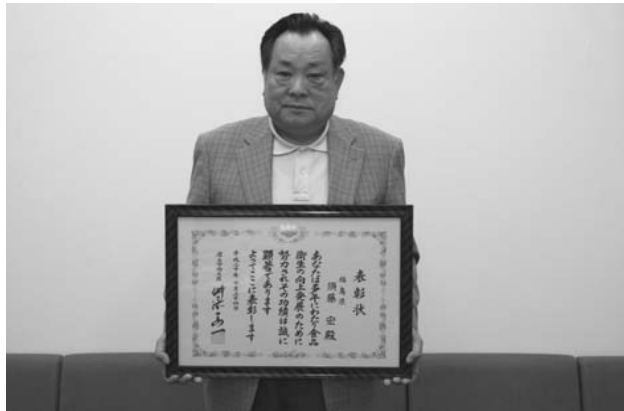 表彰状
福島県
須藤 宏 殿
あなたは多年にわたり食品
衛生の向上発展のために
努力されその功績は誠に
顕著であります
よってここに表彰します
厚生労働大臣